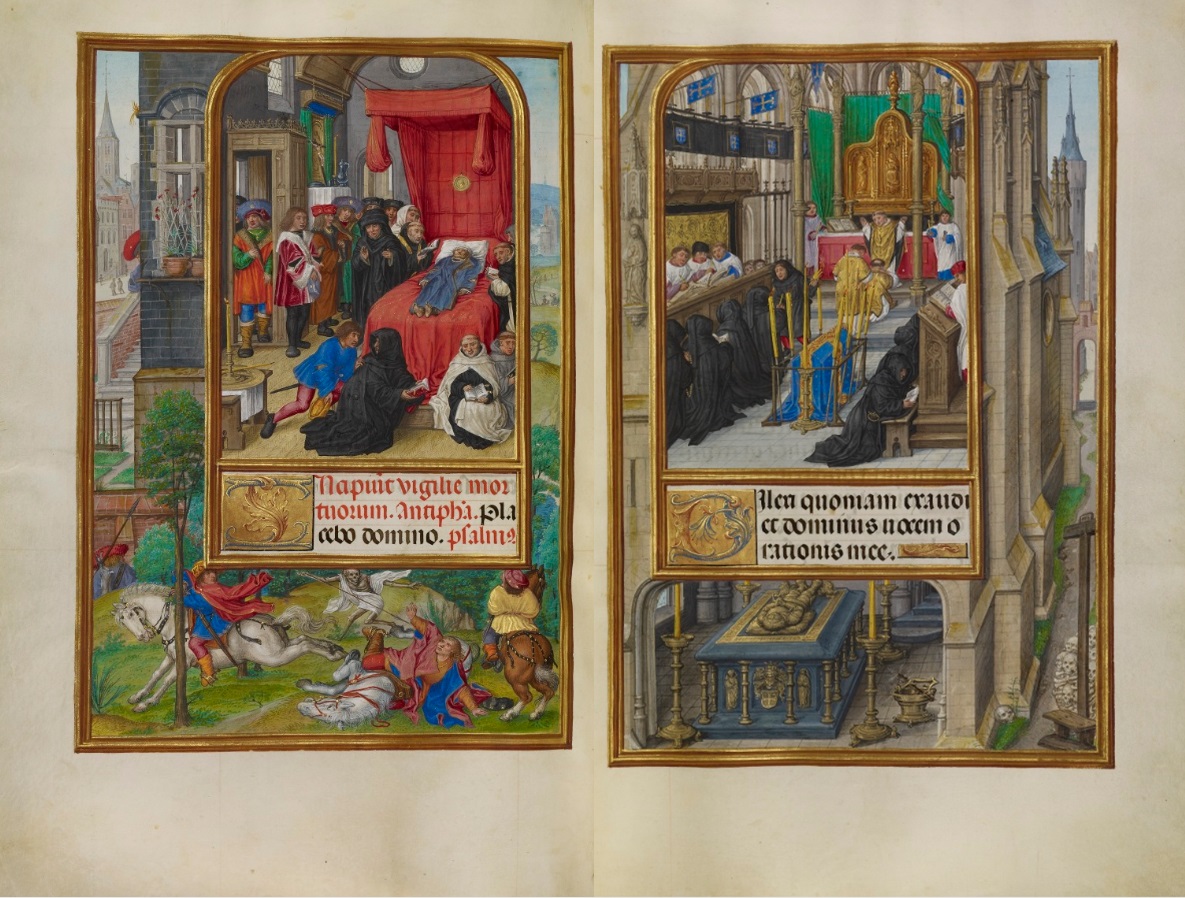 Incipiūt vigilie mor
tuorum. Antipha. Pla
cebo domino. psalmꝰ
Dilexi quoniam exaudi
et dominus vocem o
rationis mee.